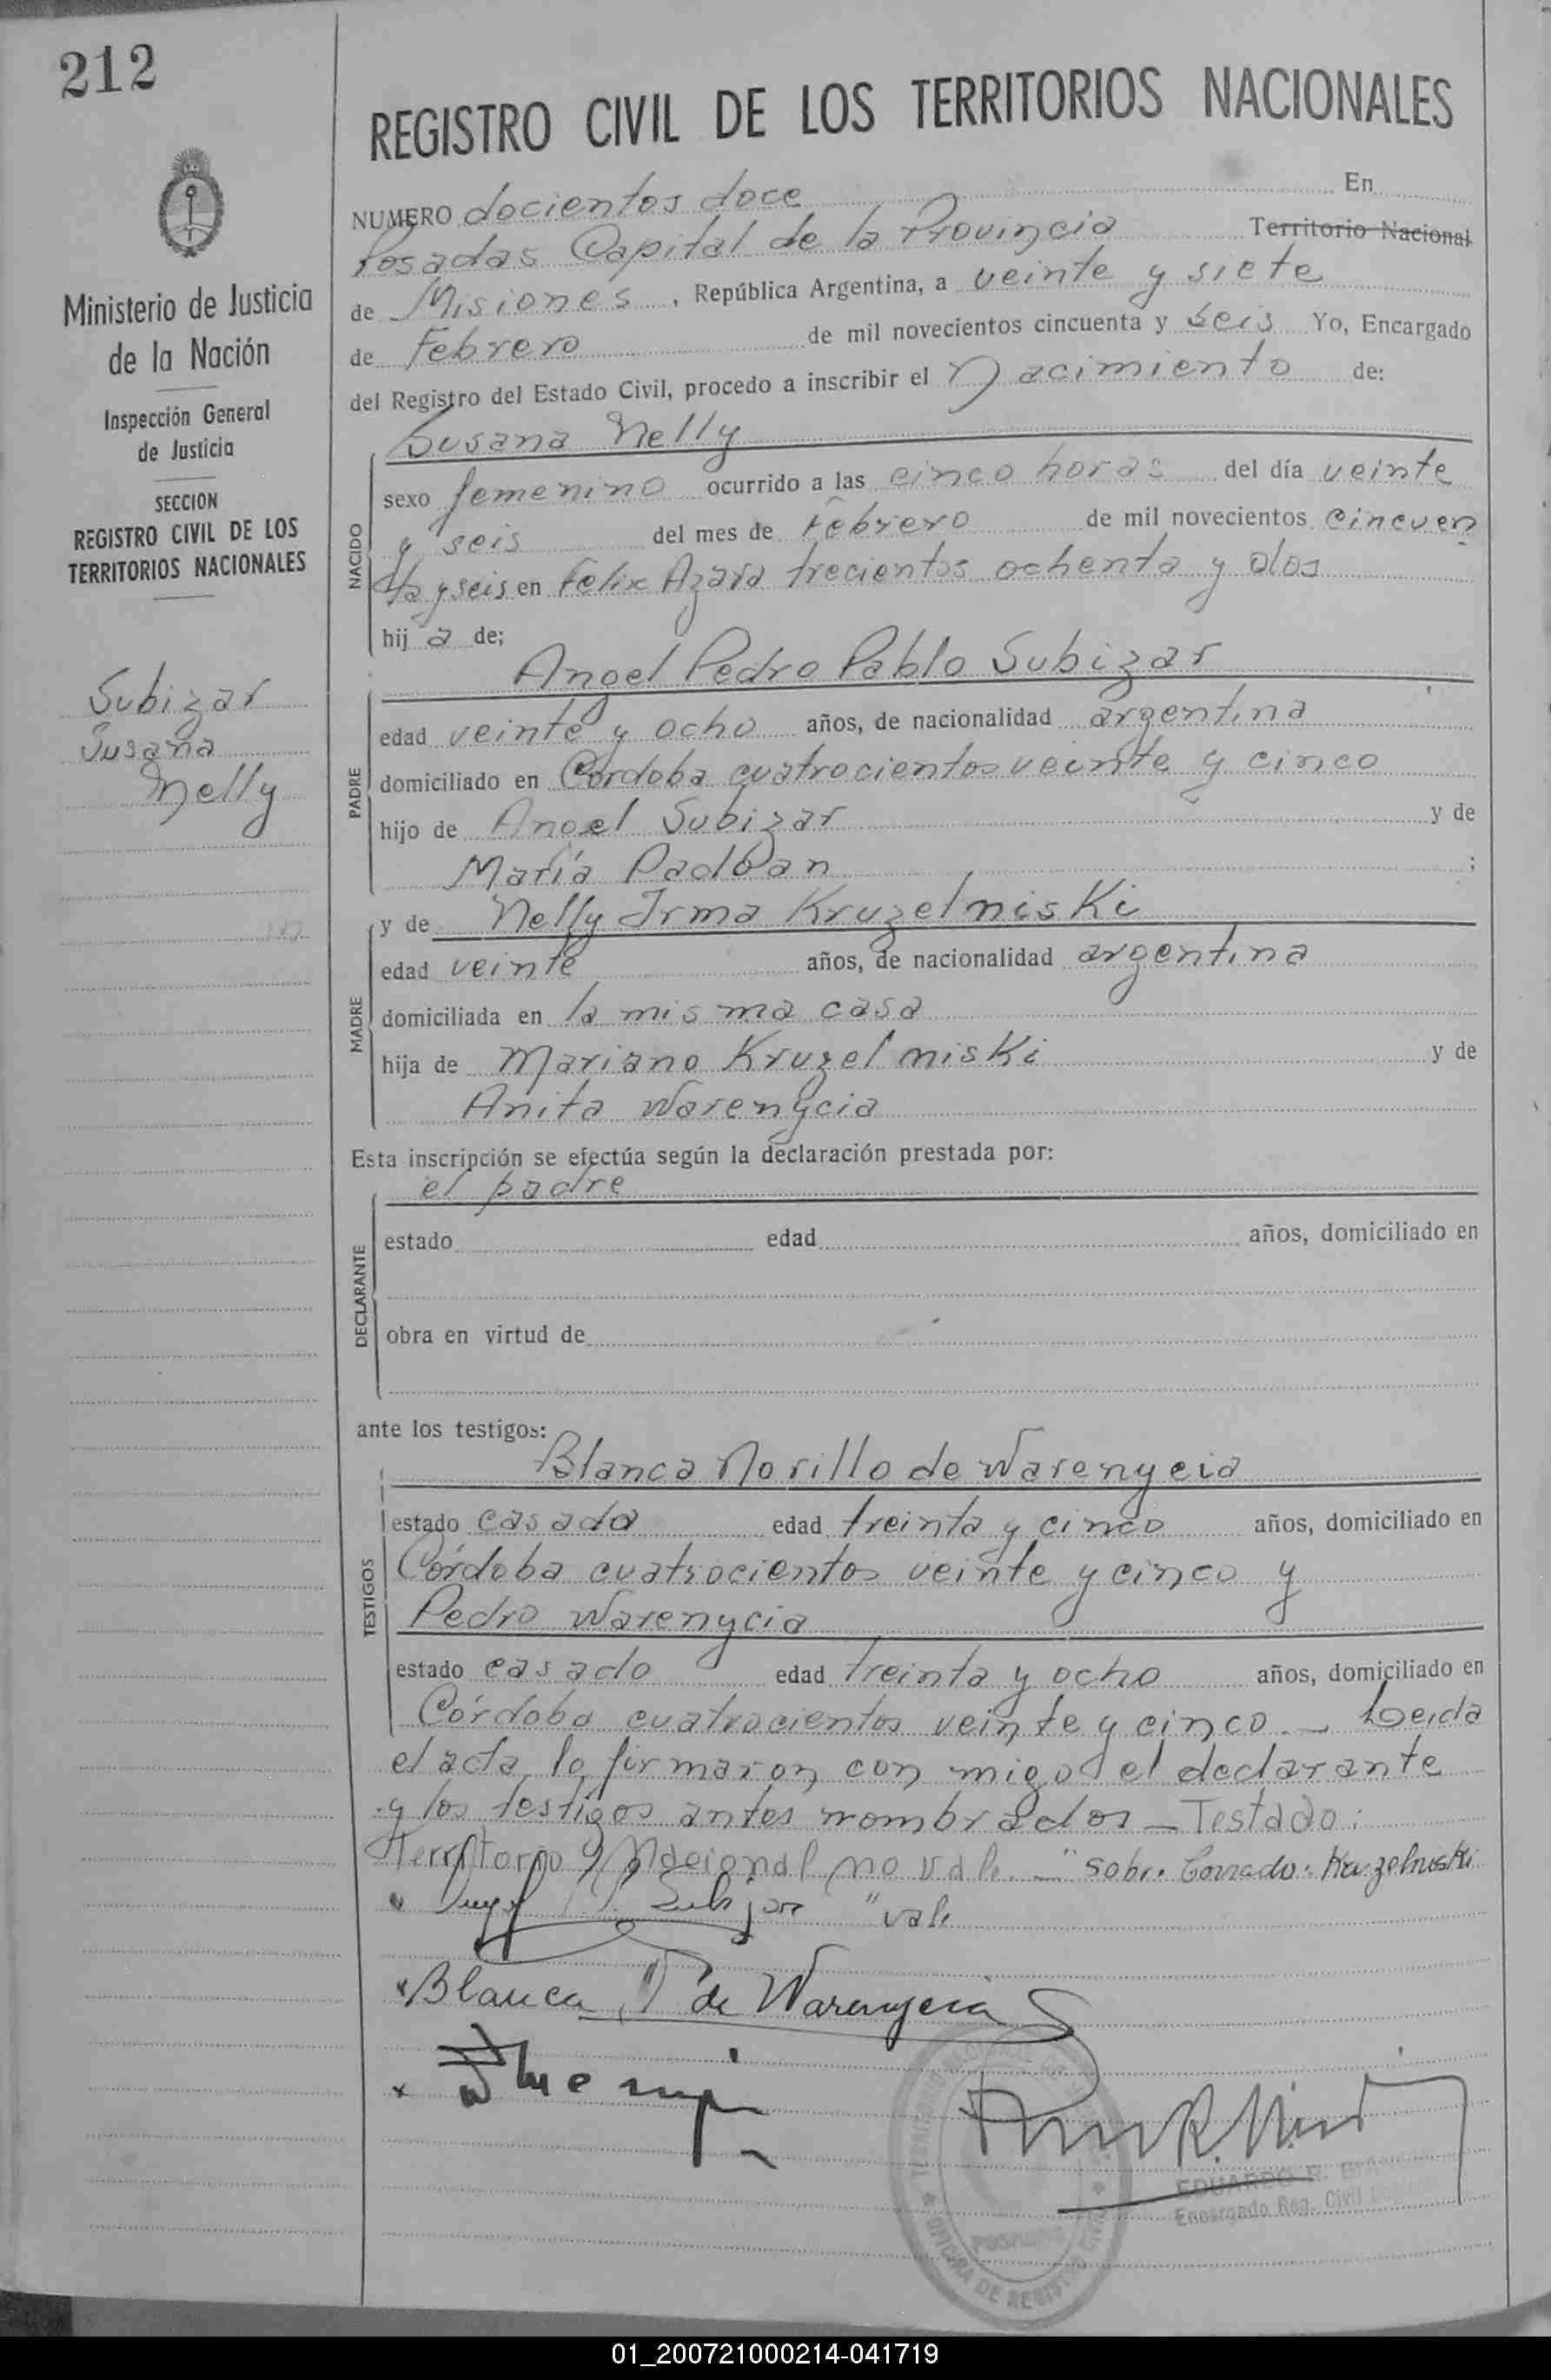 212
Ministerio de Justicia
de la Nación
Inspección General
de Justicia
SECCION
REGISTRO CIVIL DE LOS
TERRITORIOS NACIONALES
Subizar
Susana
Nelly
REGISTRO CIVIL DE LOS TERRITORIOS NACIONALES
NUMERO docientos doce En
Posadas Capital de la Provincia Territorio Nacional
de Misiones, República Argentina, a veinte y siete
de Febrero de mil novecientos cincuenta y seis Yo, Encargado
del Registro del Estado Civil, procedo a inscribir el Nacimiento de:
Susana Nelly
NACIDO
sexo femenino ocurrido a las cinco horas del día veinte
y seis del mes de Febrero de mil novecientos cincuen
ta y seis en Felix Azara trecientos ochenta y dos
hij a de;
Angel Pedro Pablo Subizar
PADRE
edad veinte y ocho años, de nacionalidad argentina
domiciliado en Córdoba cuatrocientos veinte y cinco
hijo de Angel Subizar y de
María Padoan ;
y de Nelly Irma Kruzelniski
MADRE
edad veinte años, de nacionalidad argentina
domiciliada en la misma casa
hija de Mariano Kruzelniski y de
Anita Warenycia
Esta inscripción se efectúa según la declaración prestada por:
el padre
DECLARANTE
estado edad años, domiciliado en
obra en virtud de
ante los testigos:
Blanca Norillo de Warenycia
TESTIGOS
estado casada edad treinta y cinco años, domiciliado en
Córdoba cuatrocientos veinte y cinco y
Pedro Warenycia
estado casado edad treinta y ocho años, domiciliado en
Córdoba cuatrocientos veinte y cinco.— Leida
el acta, la firmaron con migo el declarante
y los testigos antes nombrados — Testado:
Territorio y Nacional no vale. — "Sobre Borrado: Kruzelniski
" vale
Blanca N de Warenycia
EDUARDO R.
Encargado Reg. Civil
OFICINA DE REGISTRO CIVIL
POSADAS
01_200721000214-041719